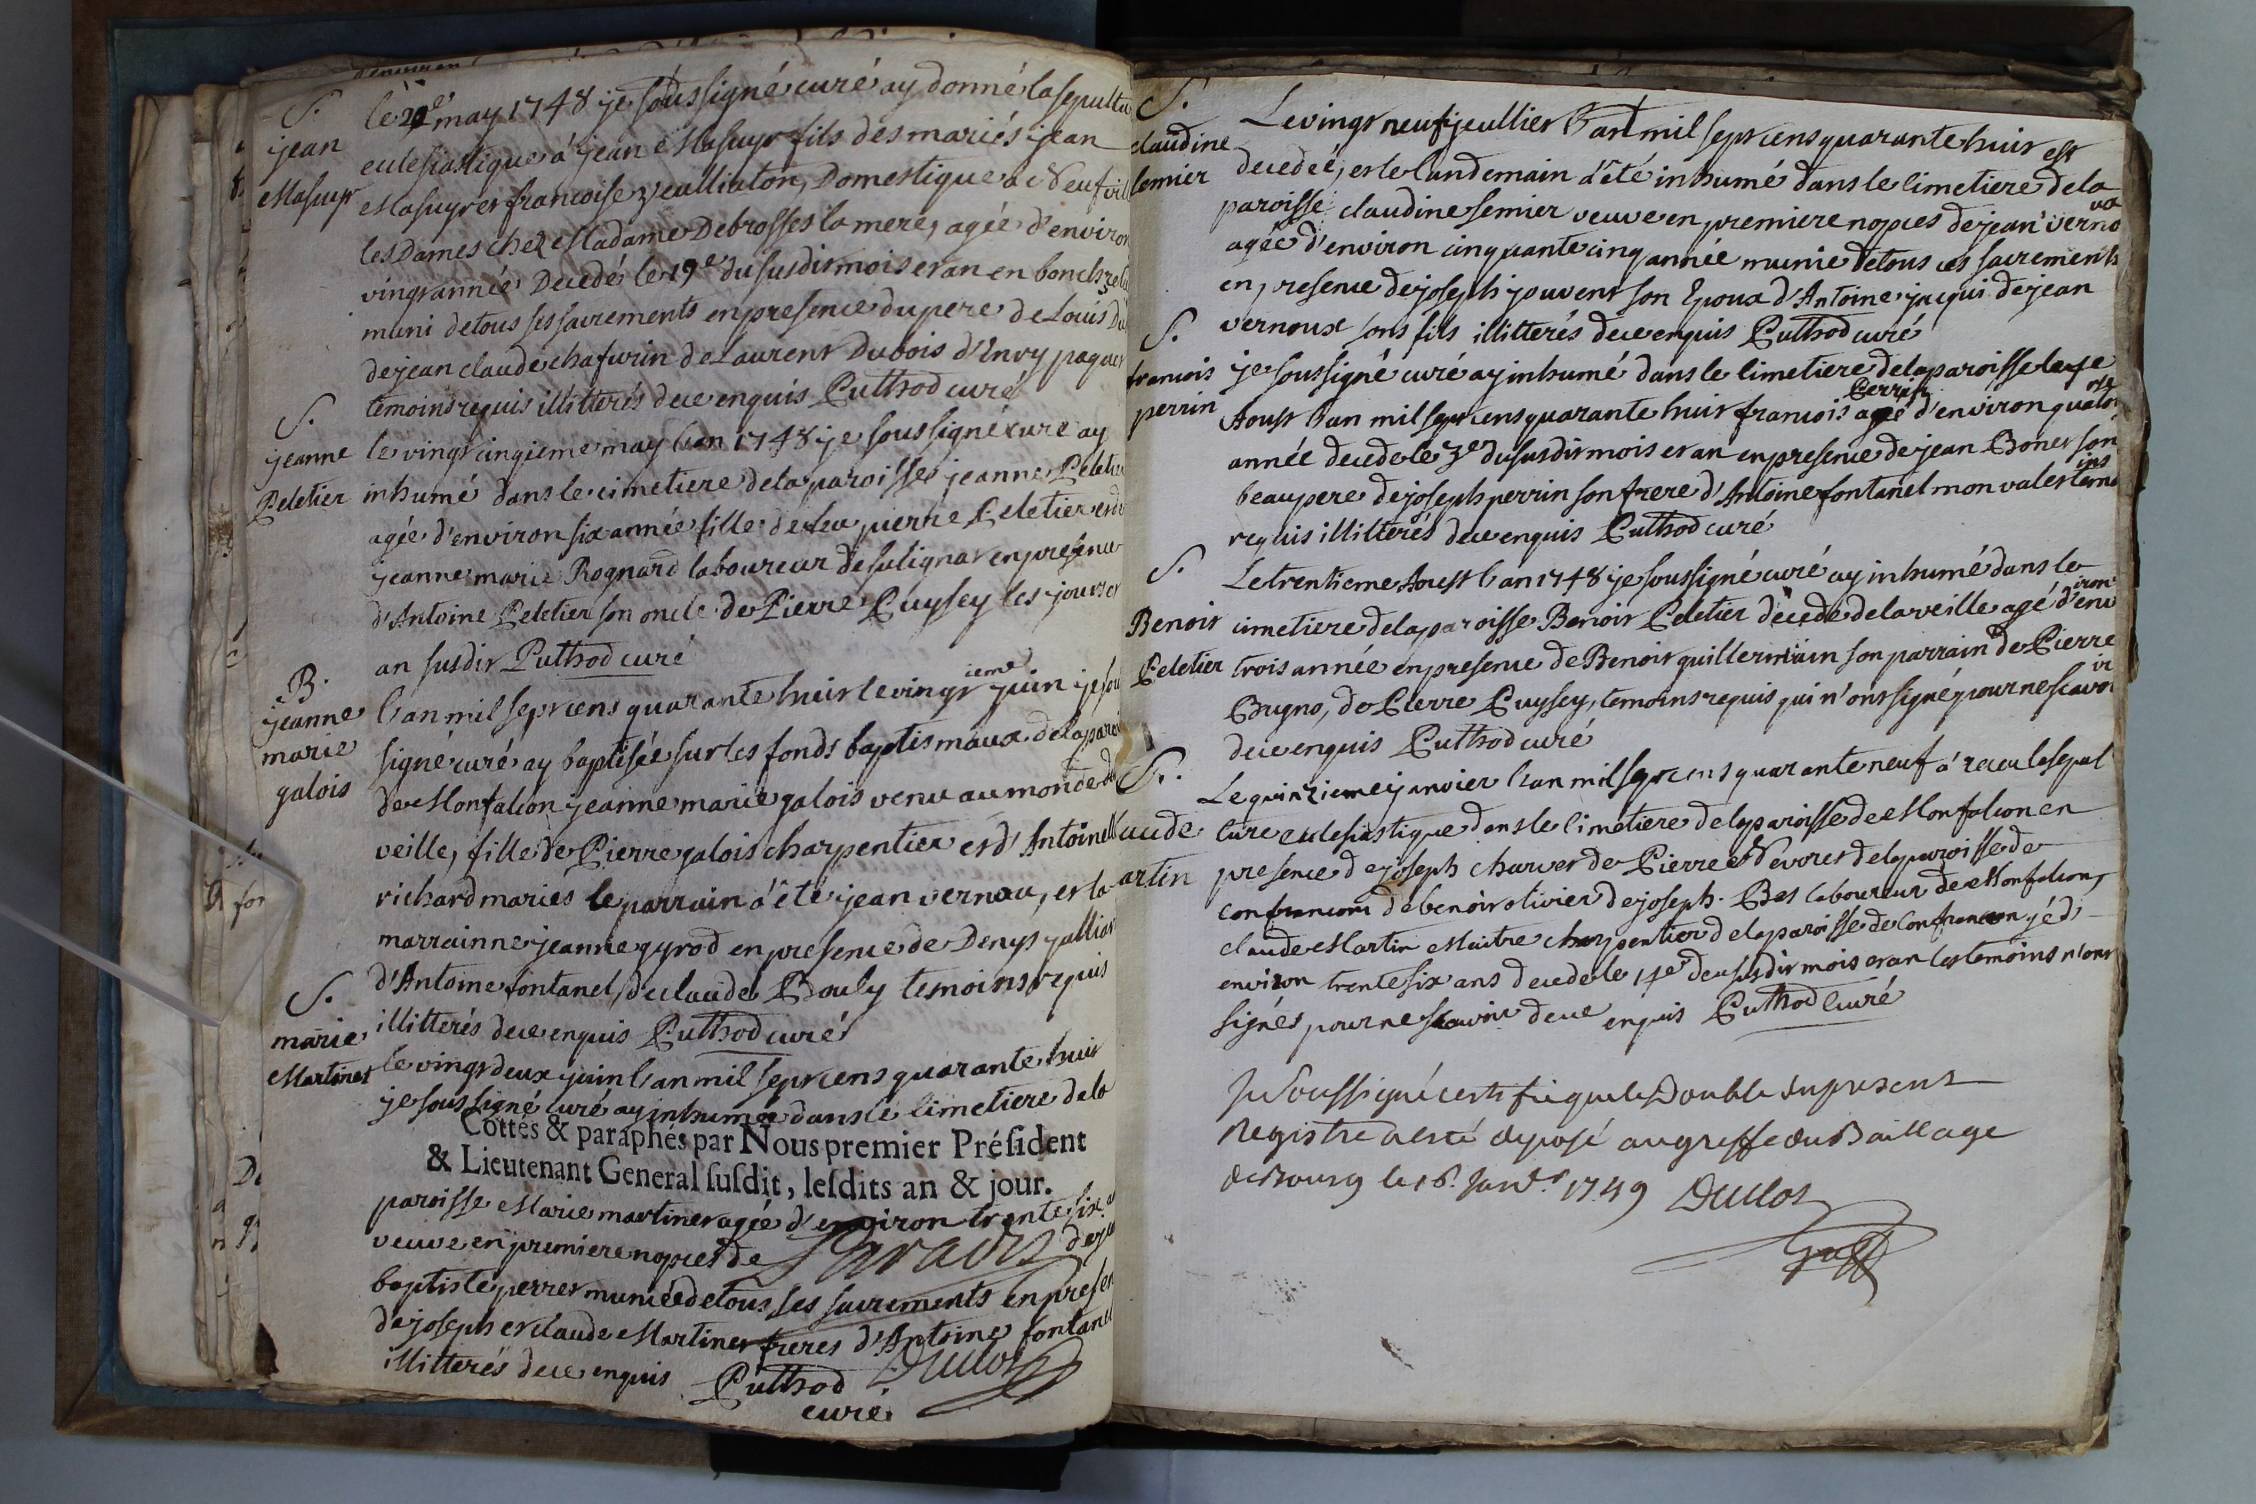 S.
jean
Masuyr
le 21e may 1748 je soussigné curé ay donné la sepultu
eclesiastique á jean Masuyr fils des mariés jean
Masuyr et francoise veulliaton, Domestique a Neufvill
les Dames chez Madame Debrosses la mere, agée d'environ
vingt année Decedé le 19e du susdit mois et an en bon chre
muni de tous ses sacrements en presence du pere de Louis Du
de jean claude chafurin de Laurent Dubois d'Envy paquet
temoins requis illitterés de ce enquis Puthod curé
S.
jeanne
Peletier
le vingt cinqieme may l'an 1748 je soussigné curé ay
inhumé dans le cimetiere de la paroisse jeanne Peletie
agée d'environ six année fille de feu pierre Peletier et de
jeanne marie Rognard laboureur de sulignat en presence
d'Antoine Peletier son oncle de Pierre Puysey les jour et
an susdit Puthod curé
B.
jeanne
marie
galois
l'an mil sept cens quarante huit le vingt ieme juin je sou
signé curé ay baptisée sur les fonds baptismaux de la paroi
de Monfalcon jeanne marie galois venu au monde de
veille, fille de Pierre galois charpentier et d'Antoinett
richard mariés le parrain á été jean vernau, et la
marrainne jeanne gyrod en presence de Denys julliar
d'Antoine fontanel, de claude Bouly temoins requis
illitterés de ce enquis Puthod curé
S.
marie
Martinet
le vingt deux juin l'an mil sept cens quarante huit
je soussigné curé ay inhumée dans le cimetiere de la
Cottés & paraphés par Nous premier Président
& Lieutenant General susdit, lesdits an & jour.
paroisse Marie martinet agée d'environ trente six a
veuve en premiere nopces de Paradis de je
baptiste perret munie de tous ses sacrements en presen
de joseph et claude Martinet freres d'Antoine fontanel
illitterés de ce enquis Puthod Duclos
curé
S.
claudine
semier
Le vingt neuf jeullier l'an mil sept cens quarante huit est
decedeé, et le landemain a été inhumé dans le cimetiere de la
paroisse claudine semier veuve en premiere nopces de jean verno
va
agée d'environ cinquante cinq année munie de tous ces sacrements
en presence de joseph jouvent son Epoux d'Antoine jacqui de jean
vernoux sons fils illitterés de ce enquis Puthod curé
S.
francois
perrin
je soussigné curé ay inhumé dans le cimetiere de la paroisse le 4e
Aoust l'an mil sept cens quarante huit francois Perrin agé d'environ quator
rse
année decedé le 3e du susdit mois et an en presence de jean Bonet son
beaupere de joseph perrin son frere d'Antoine fontanel mon valet temo
ins
requis illitterés de ce enquis Puthod curé
S.
Benoit
Peletier
Le trentieme Aoust l'an 1748 je soussigné curé ay inhumé dans le
cimetiere de la paroisse Benoit Peletier décedé de la veille agé d'env
iron
trois année en presence de Benoit guillermain son parrain de Pierre
Bugno, de Pierre Puysey, temoins requis qui n'ont signé pour ne scavo
ir
de ce enquis Puthod curé
S.
aude
artin
Le quinzieme janvier l'an mil sept cens quarante neuf á receu la sepul
ture eclesiastique dans le cimetiere de la paroisse de Monfalcon en
presence de joseph charvet de Pierre Devoret de la paroisse de
confrancon de benoit olivier de joseph Bas laboureur de Monfalcon,
claude Martin Maitre charpentier de la paroisse de Confrancon agé d'
environ trente six ans decedé le 14e du susdit mois et an les temoins n'ont
signés pour ne scavoir de ce enquis Puthod Curé
Je Soussigné certifie que le Double du present
Registre a esté deposé au greffe du Baillage
de Bourg le 16. Janvr. 1749 Duclos
Greff